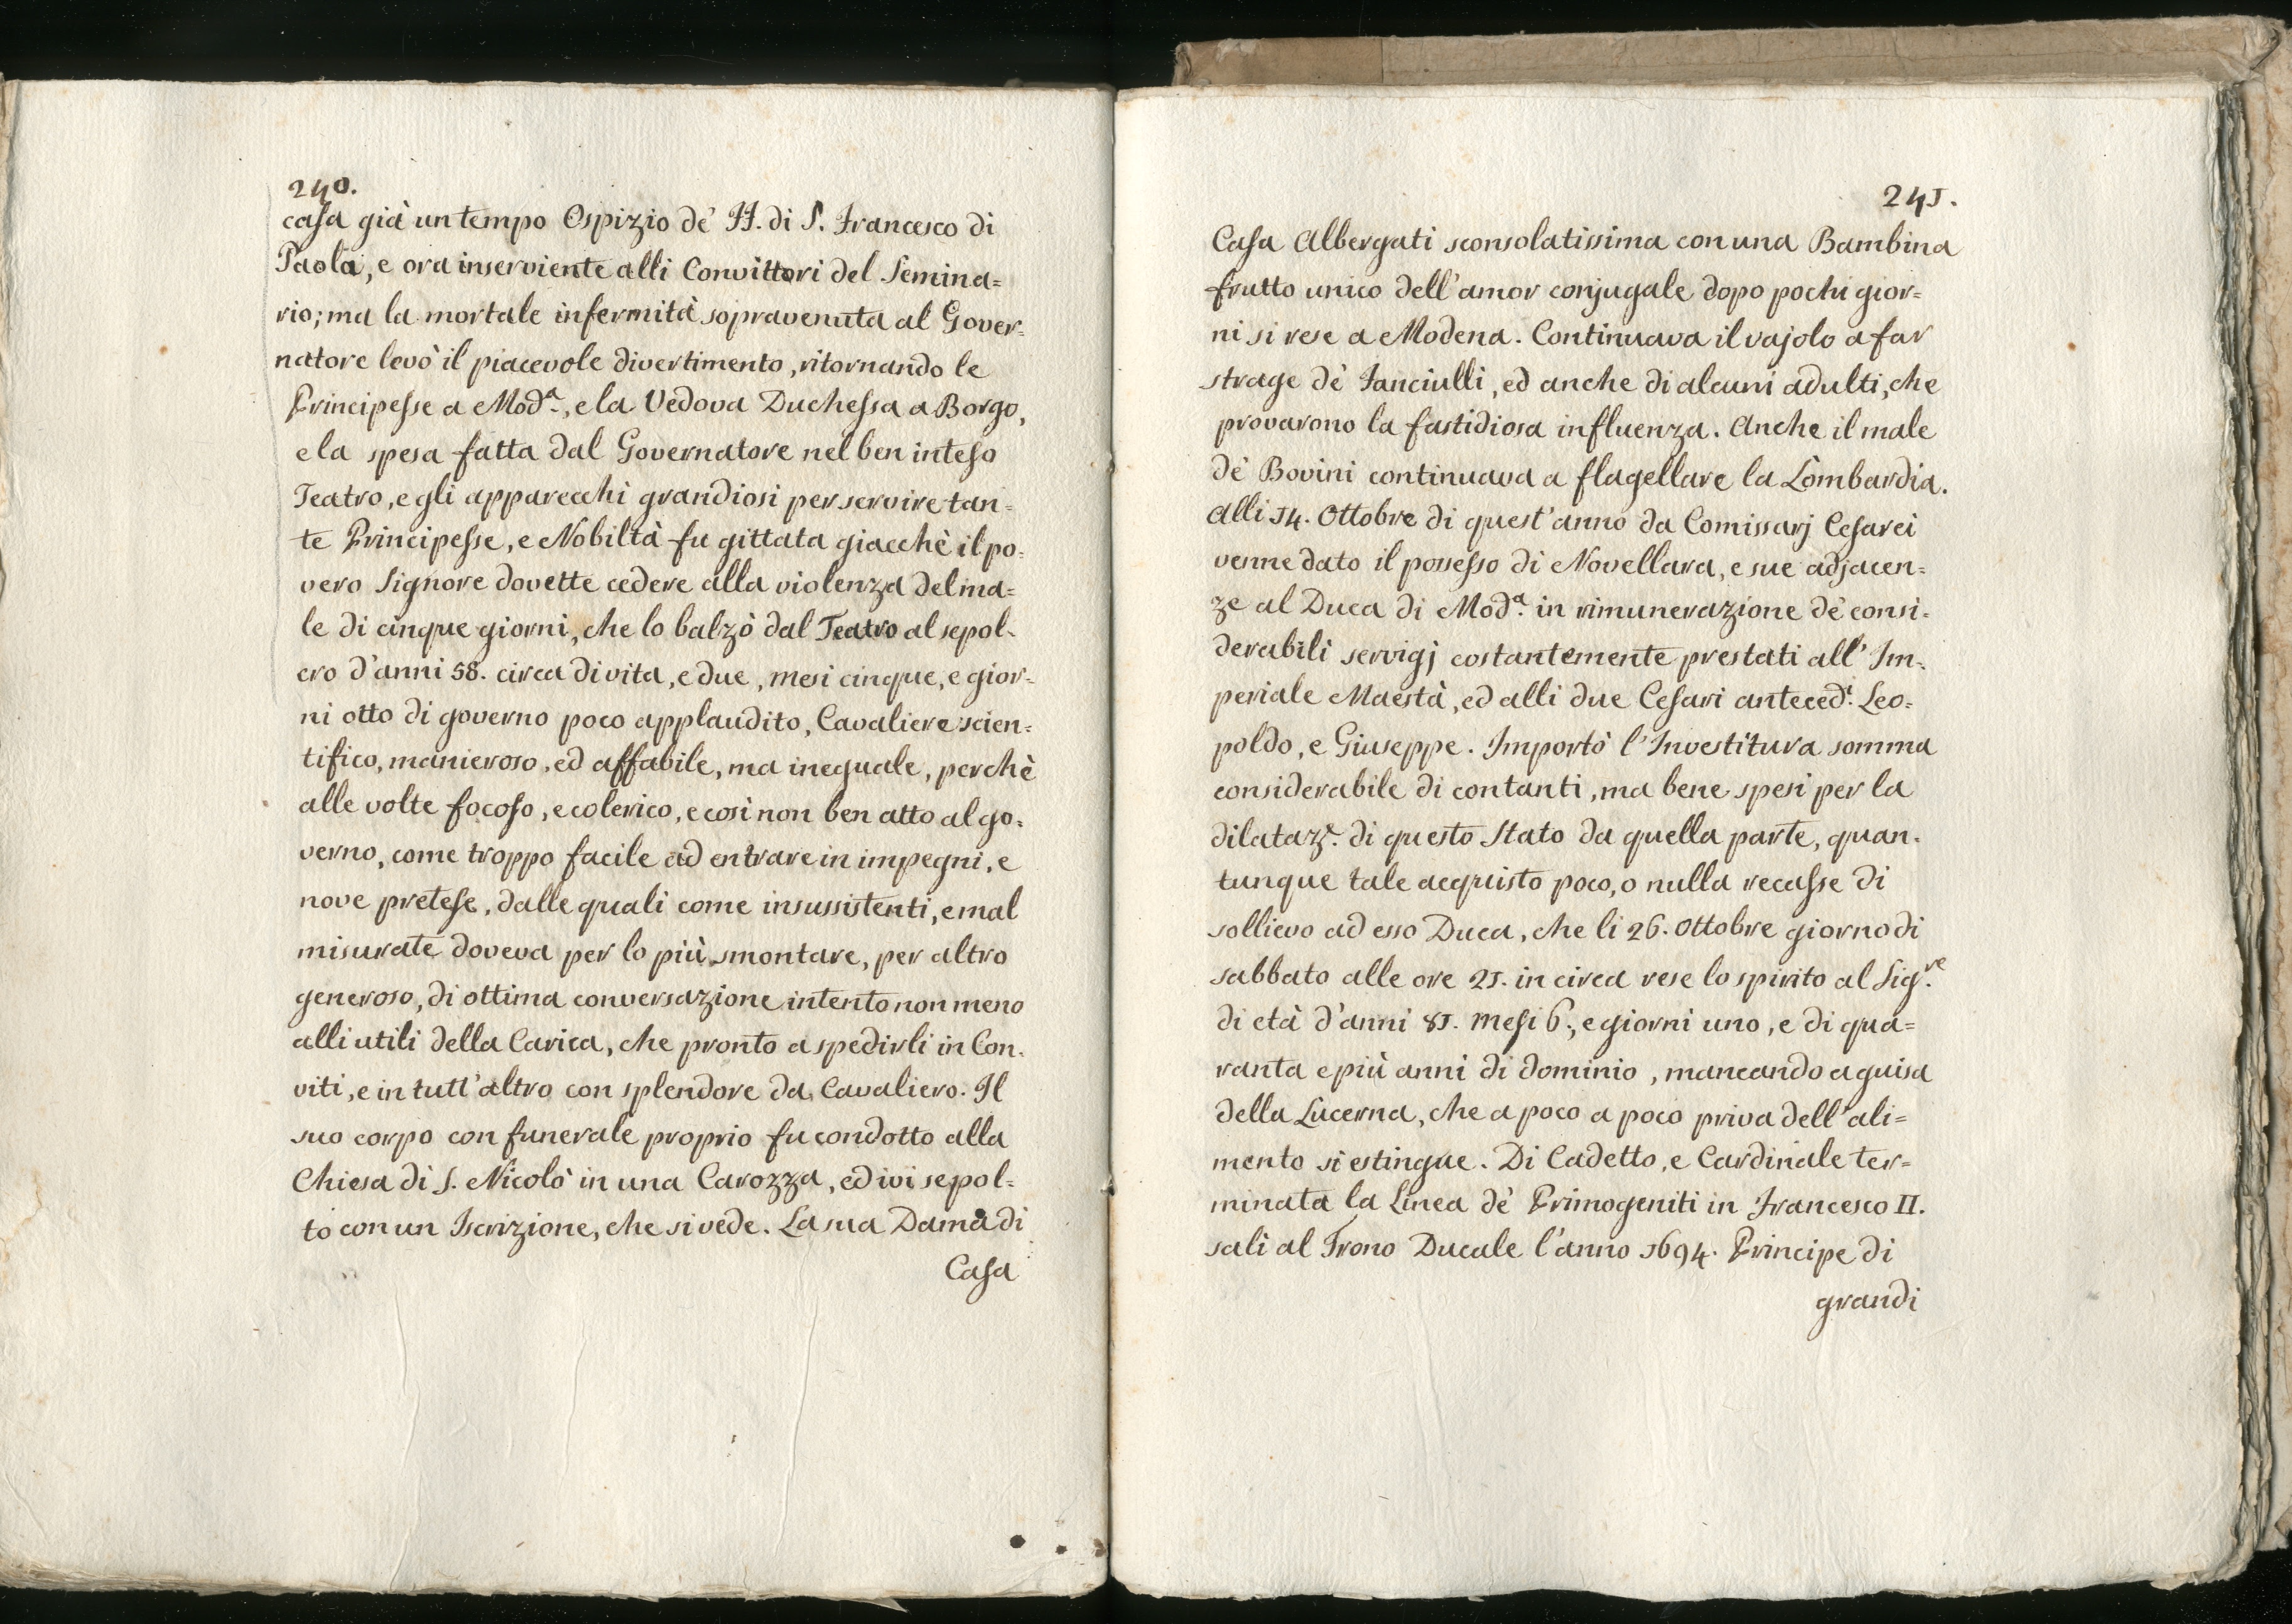 240.
casa già un tempo Ospizio de' FF. di S. Francesco di
Paola, e ora inserviente alli Convittori del Semina=
rio; ma la mortale infermità sopravenuta al Gover=
natore levò il piacevole divertimento, ritornando le
Principesse a Mod.ª, e la Vedova Duchessa a Borgo,
e la spesa fatta dal Governatore nel ben inteso
Teatro, e gli apparecchi grandiosi per servire tan=
te Principesse, e Nobiltà fu gittata giacchè il po=
vero Signore dovette cedere alla violenza del ma=
le di cinque giorni, che lo balzò dal Teatro al sepol=
cro d'anni 58. circa di vita, e due, mesi cinque, e gior=
ni otto di governo poco applaudito, Cavaliere scien=
tifico, manieroso, ed affabile, ma ineguale, perchè
alle volte focoso, e colerico, e così non ben atto al go=
verno, come troppo facile ad entrare in impegni, e
nove pretese, dalle quali come insussistenti, e mal
misurate doveva per lo più smontare, per altro
generoso, di ottima conversazione intento non meno
alli utili della Carica, che pronto a spedirli in Con=
viti, e in tutt'altro con splendore da Cavaliero. Il
suo corpo con funerale proprio fu condotto alla
Chiesa di S. Nicolò in una Carozza, ed ivi sepol=
to con un Iscrizione, che si vede. La sua Dama di
Casa
241.
Casa Albergati sconsolatissima con una Bambina
frutto unico dell'amor conjugale dopo pochi gior=
ni si rese a Modena. Continuava il vajolo a far
strage de' Fanciulli, ed anche di alcuni adulti, che
provarono la fastidiosa influenza. Anche il male
de' Bovini continuava a flagellare la Lombardia.
Alli 14. Ottobre di quest'anno da Comissarj Cesarei
venne dato il possesso di Novellara, e sue adjacen=
ze al Duca di Mod.ª in rimunerazione de' consi=
derabili servigj costantemente prestati all' Im=
periale Maestà, ed alli due Cesari anteced.ⁱ Leo=
poldo, e Giuseppe. Importò l'Investitura somma
considerabile di contanti, ma bene spesi per la
dilataz.ᵉ di questo Stato da quella parte, quan=
tunque tale acquisto poco, o nulla recasse di
sollievo ad esso Duca, che li 26. Ottobre giorno di
sabbato alle ore 21. in circa rese lo spirito al Sig.ʳᵉ
di età d'anni 81. mesi 6., e giorni uno, e di qua=
ranta e più anni di dominio, mancando a guisa
della Lucerna, che a poco a poco priva dell'ali=
mento si estingue. Di Cadetto, e Cardinale ter=
minata la Linea de' Primogeniti in Francesco II.
salì al Trono Ducale l'anno 1694. Principe di
grandi